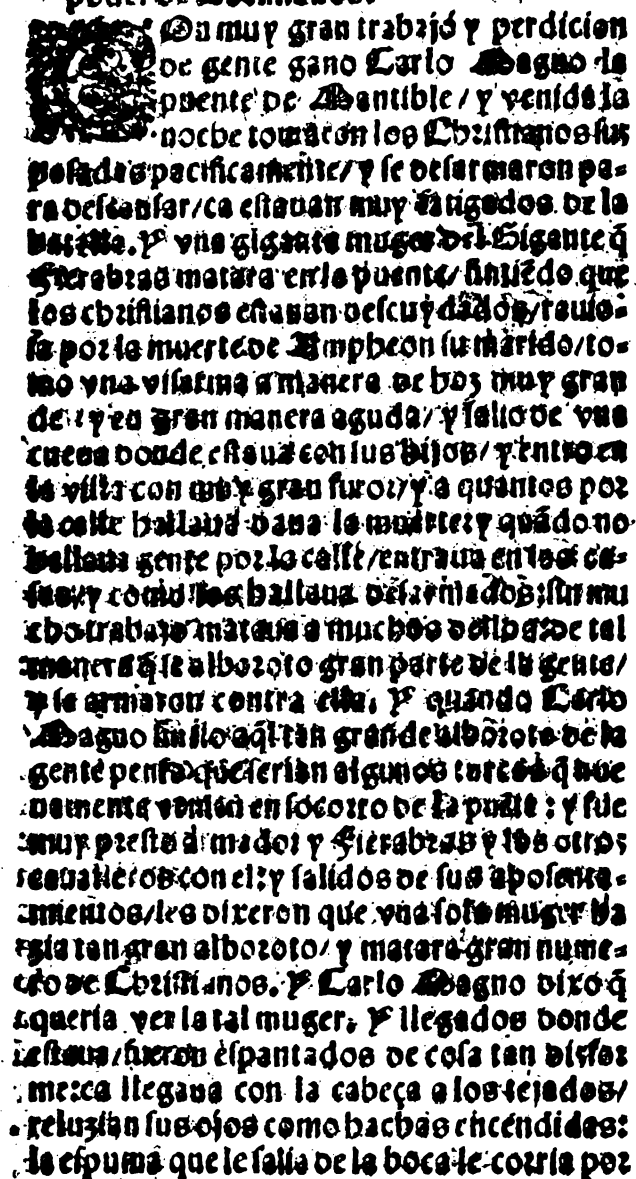 COn muy gran trabajo y perdicion
de gente gano Carlo Magno la
puente de Mantible/ y venida la
noche tomaron los Christianos sus
posadas pacificamente/ y se desarmaron pa=
ra descansar/ca estauan muy fatigados de la
batalla. Y vna giganta muger del Gigante q̃
Fierabras matara en la puente/ sintiẽdo que
los christianos estauan descuydados/rauio=
sa por la muerte de Ampheon su marido/to=
mo vna visarma a manera de hoz muy gran
de: y en gran manera aguda/ y salio de vna
cueua donde estaua con sus hijos/ y entro en
la villa con muy gran furor/y a quantos por
la calle hallaua daua la muerte:y quãdo no
hallaua gente por la calle/entraua en las ca=
sas/y como los hallaua desarmados:sin mu
cho trabajo mataua a muchos dellos:de tal
manera q̃ se alboroto gran parte de la gente/
y se armaron contra ella. Y quando Carlo
Magno sintio aq̃l tan grande alboroto de la
gente penso que serian algunos turcos q̃ nue
uamente venian en socorro de la puẽte : y fue
muy presto armado: y Fierabras y los otros
caualleros con el:y salidos de sus aposenta=
mientos/les dixeron que vna sola muger ha
zia tan gran alboroto/ y matara gran nume=
ro de Christianos. Y Carlo Magno dixo q̃
queria ver la tal muger. Y llegados donde
estaua/fueron espantados de cosa tan disfor
me:ca llegaua con la cabeça a los tejados/
reluzian sus ojos como hachas encendidas:
la espuma que le salia de la boca le corria por